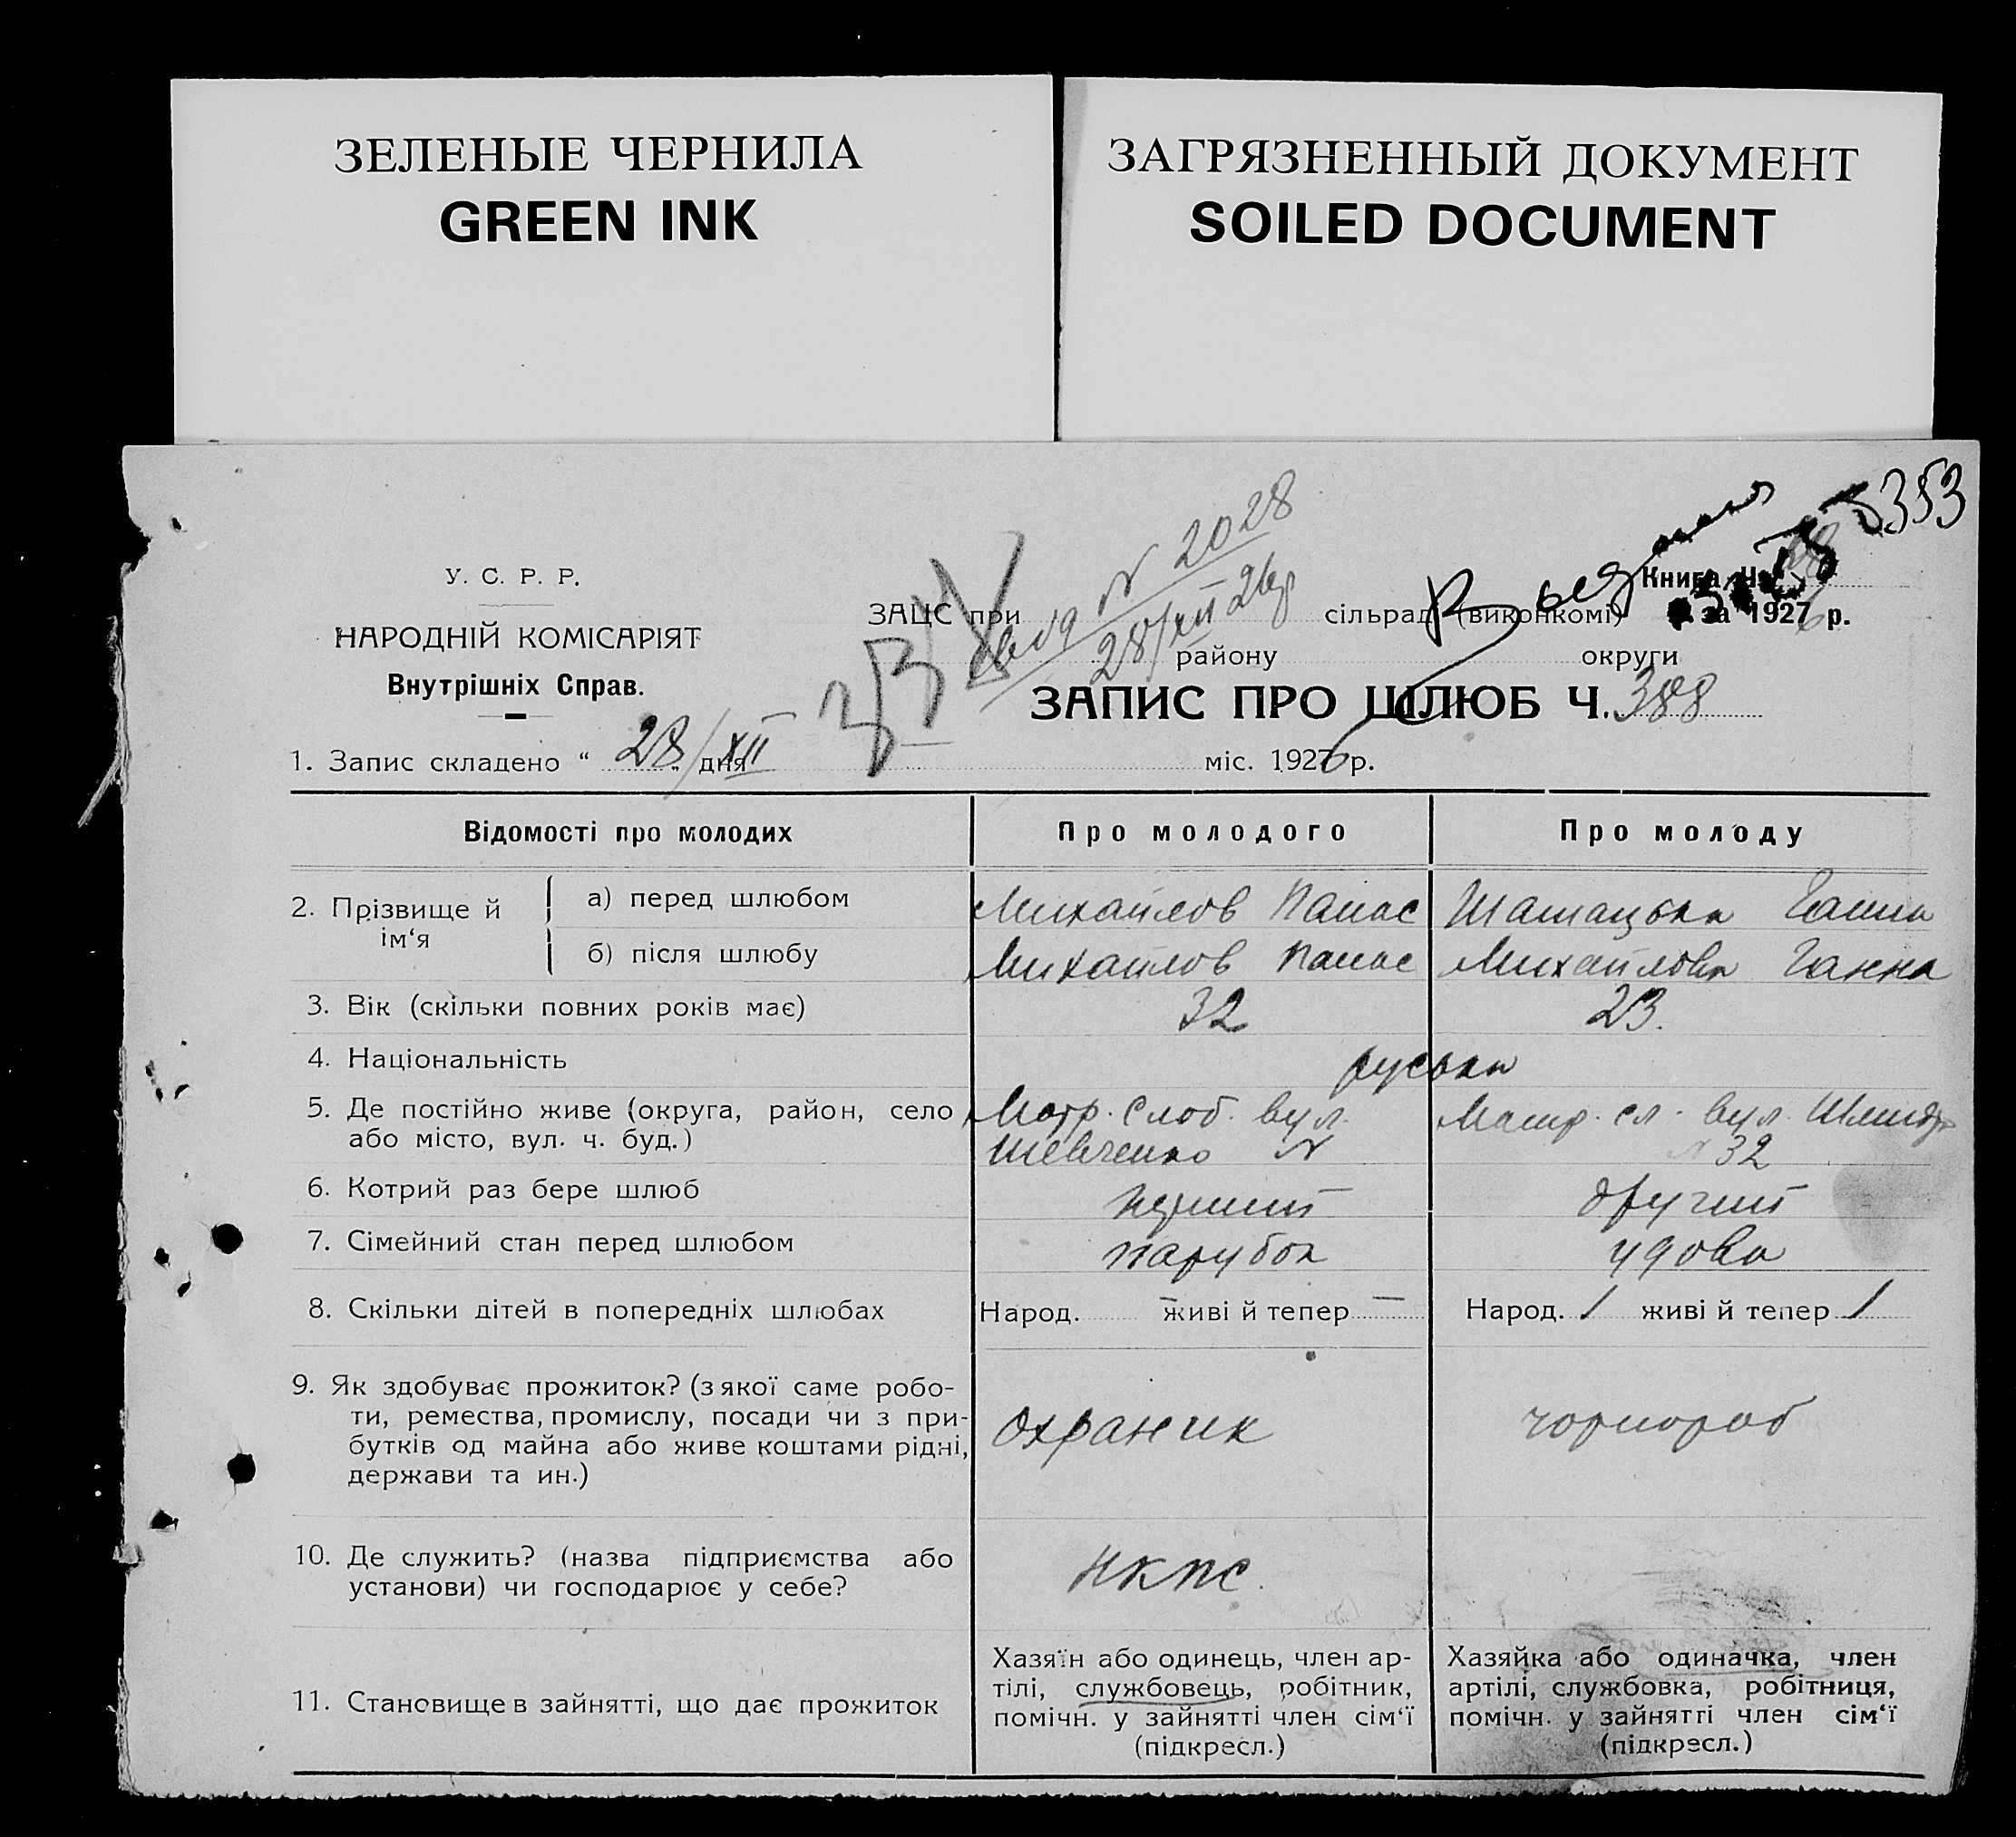 ЗЕЛЕНЫЕ ЧЕРНИЛА
GREEN INK
ЗАГРЯЗНЕННЫЙ ДОКУМЕНТ
SOILED DOCUMENT
5353
У. С. Р. Р.
НАРОДНІЙ КОМІСАРІЯТ
Внутрішніх Справ.
N 2028
28/XII 26р
Книга Ч.
ЗАЦС при сільраді (виконкомі) за 1927 р.
району округи
ЗАПИС ПРО ШЛЮБ Ч. 388
1. Запис складено “ 28/XII „ дня міс. 1926 р.
Відомості про молодих Про молодого Про молоду
2. Прізвище й ім‘я
а) перед шлюбом Михайлов Панас Ганна
б) після шлюбу Михайлов Панас Михайлова Ганна
3. Вік (скільки повних років має) 32 23.
4. Національність руська
5. Де постійно живе (округа, район, село або місто, вул. ч. буд.)
Матр. Слоб. вул.
Шевченко N
Матр. сл. вул. Шмидта
N 32
6. Котрий раз бере шлюб перший другий
7. Сімейний стан перед шлюбом парубок удова
8. Скільки дітей в попередніх шлюбах Народ. — живі й тепер — Народ. 1 живі й тепер 1
9. Як здобуває прожиток? (з якої саме робо-
ти, ремества, промислу, посади чи з при-
бутків од майна або живе коштами рідні,
держави та ин.)
охраник чорнороб
10. Де служить? (назва підприємства або
установи) чи господарює у себе?
НКПС.
11. Становище в зайнятті, що дає прожиток
Хазяїн або одинець, член ар-
тілі, службовець, робітник,
помічн. у зайнятті член сім‘ї
(підкресл.)
Хазяйка або одиначка, член
артілі, службовка, робітниця,
помічн. у зайнятті член сім‘ї
(підкресл.)